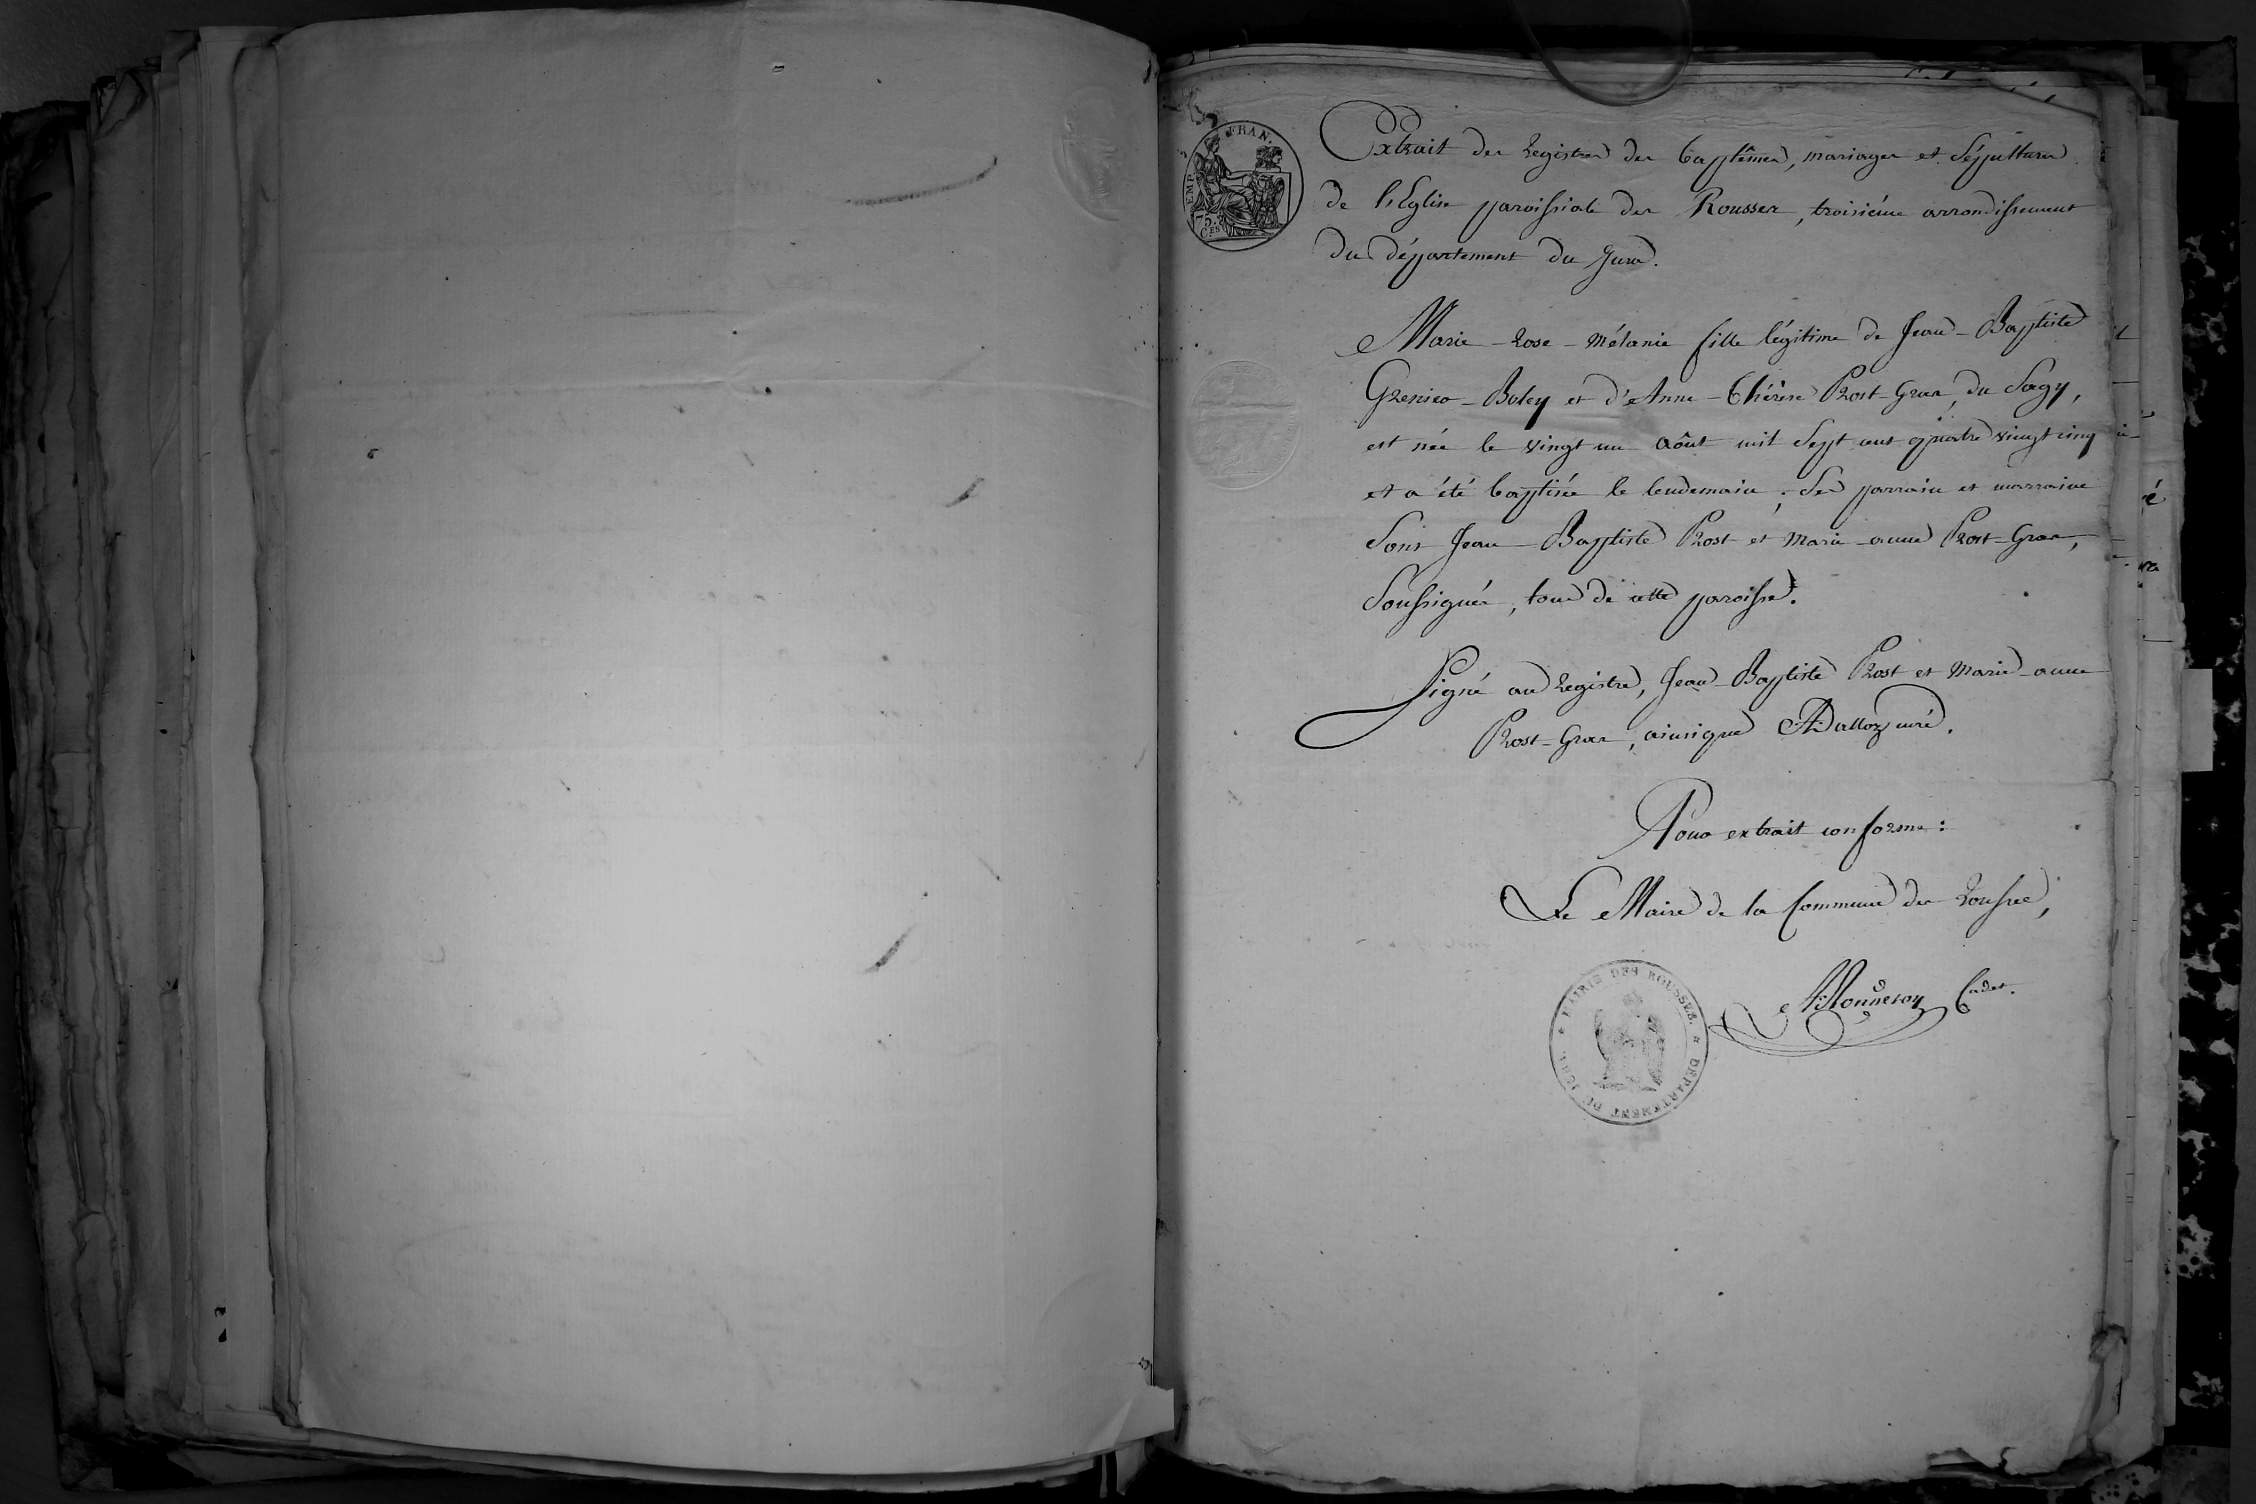 EMP. FRAN.
75.
C.ES
Extrait des Registres des baptêmes, mariages et sépultures
de l'Eglise paroissiale des Rousses, troisième arrondissement
du département du Jura.
Marie-Rose-Mélanie fille légitime de Jean-Baptiste
Grenier-Boley et d'Anne-Thérèse Prost-Gros, du Sagy,
est née le vingt un août mil sept cent quatre vingt cinq
et a été baptisée le lendemain; ses parrain et marraine
sont Jean-Baptiste Prost et Marie-anne Prost-Gros,
soussignés, tous de cette paroisse.
Signé au registre, Jean-Baptiste Prost et Marie-anne
Prost-Gros, ainsique Dalloz curé.
Pour extrait conforme:
Le Maire de la Commune des Rousses,
Monneroy Cadet.
MAIRIE DES ROUSSES * DEPARTEMENT DU JURA *